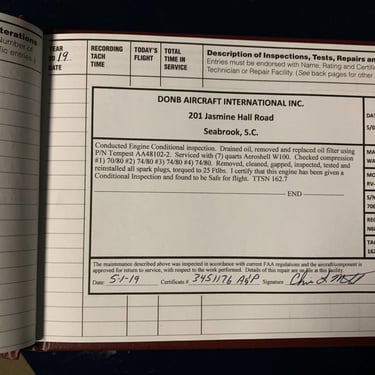 terations
Number of
fic entries.)
YEAR
2019
DATE
RECORDING
TACH
TIME
TODAY'S
FLIGHT
TOTAL
TIME IN
SERVICE
Description of Inspections, Tests, Repairs an
Entries must be endorsed with Name, Rating and Certific
Technician or Repair Facility. (See back pages for other
DONB AIRCRAFT INTERNATIONAL INC.
201 Jasmine Hall Road
Seabrook, S.C.
Conducted Engine Conditional inspection. Drained oil, removed and replaced oil filter using
P/N Tempest AA48102-2. Serviced with (7) quarts Aeroshell W100. Checked compression
#1) 70/80 #2) 74/80 #3) 74/80 #4) 74/80. Removed, cleaned, gapped, inspected, tested and
reinstalled all spark plugs, torqued to 25 Ftlbs. I certify that this engine has been given a
Conditional Inspection and found to be Safe for flight. TTSN 162.7
END
The maintenance described above was inspected in accordance with current FAA regulations and the aircraft/component is
approved for return to service, with respect to the work performed. Details of this repair are on file at this facility.
Date: 5-1-19 Certificate # 3451176 A&P Signature
DA
5/0
MA
MO
RV-
S/N
REG
TAC
162